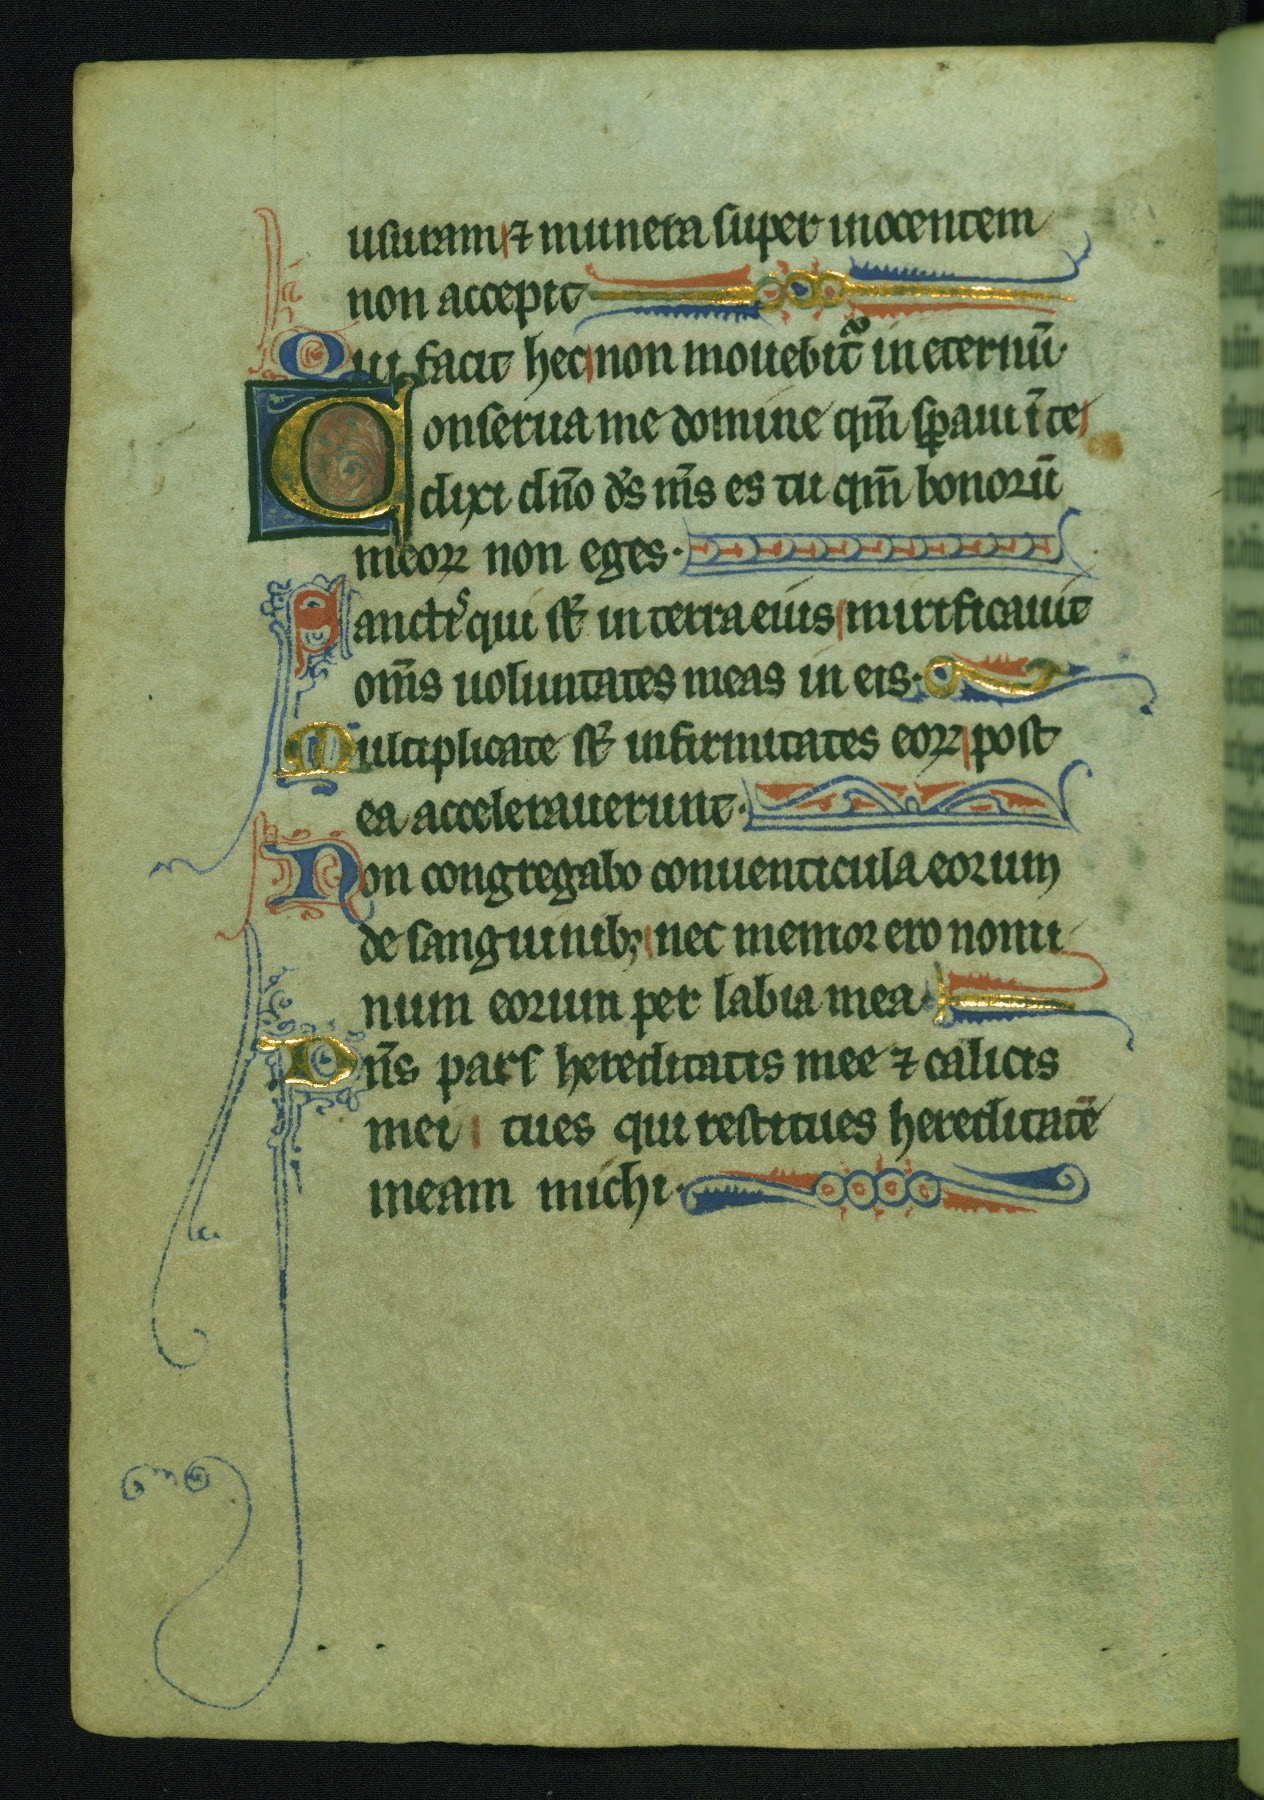 usuram ⁊ munera super inocentem
non accepit
Qui facit hec non mouebit᷑ in eternū·
Conserua me domine qm̄ sꝑaui ī te
dixi dn̄o ds̄ ms̄ es tu qm̄ bonorū
meoꝝ non eges·
Sanctis qui st̄ in terra eius mirificauit
om̄s uoluntates meas in eis·
Multiplicate st̄ infirmitates eoꝝ post
ea accelerauerunt·
Non congregabo conuenticula eorum
de sanguinibꝫ nec memor ero nomi
num eorum per labia mea·
Dn̄s pars hereditatis mee ⁊ calicis
mei tu es qui restitues hereditatē
meam michi·